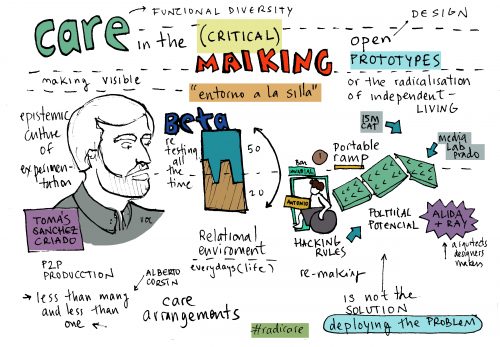 care
FUNCIONAL DIVERSITY
DESIGN
in the
(CRITICAL)
MAIKING
open
PROTOTYPES
making visible
"entorno a la silla"
or the radicalisation
of independent-
LIVING
epistemic
culture
of
experimen-
tation
Beta
re
testing
all
the
time
50
20
15M
CAT
MEDIA
LAB
PRADO
Portable
ramp
BAR
ANTONIO
TOMÁS
SANCHEZ
CRIADO
HACKING
RULES
POLITICAL
POTENCIAL
ALIDA
+ RAY
designers
makers
Relational
enviroment
everydays (life)
P2P
PRODUCCTION
ALBERTO
CORSÍN
less than many
and less than
one
care
arrangements
re-making
IS not the
SOLUTION
deploying the PROBLEM
#radicare